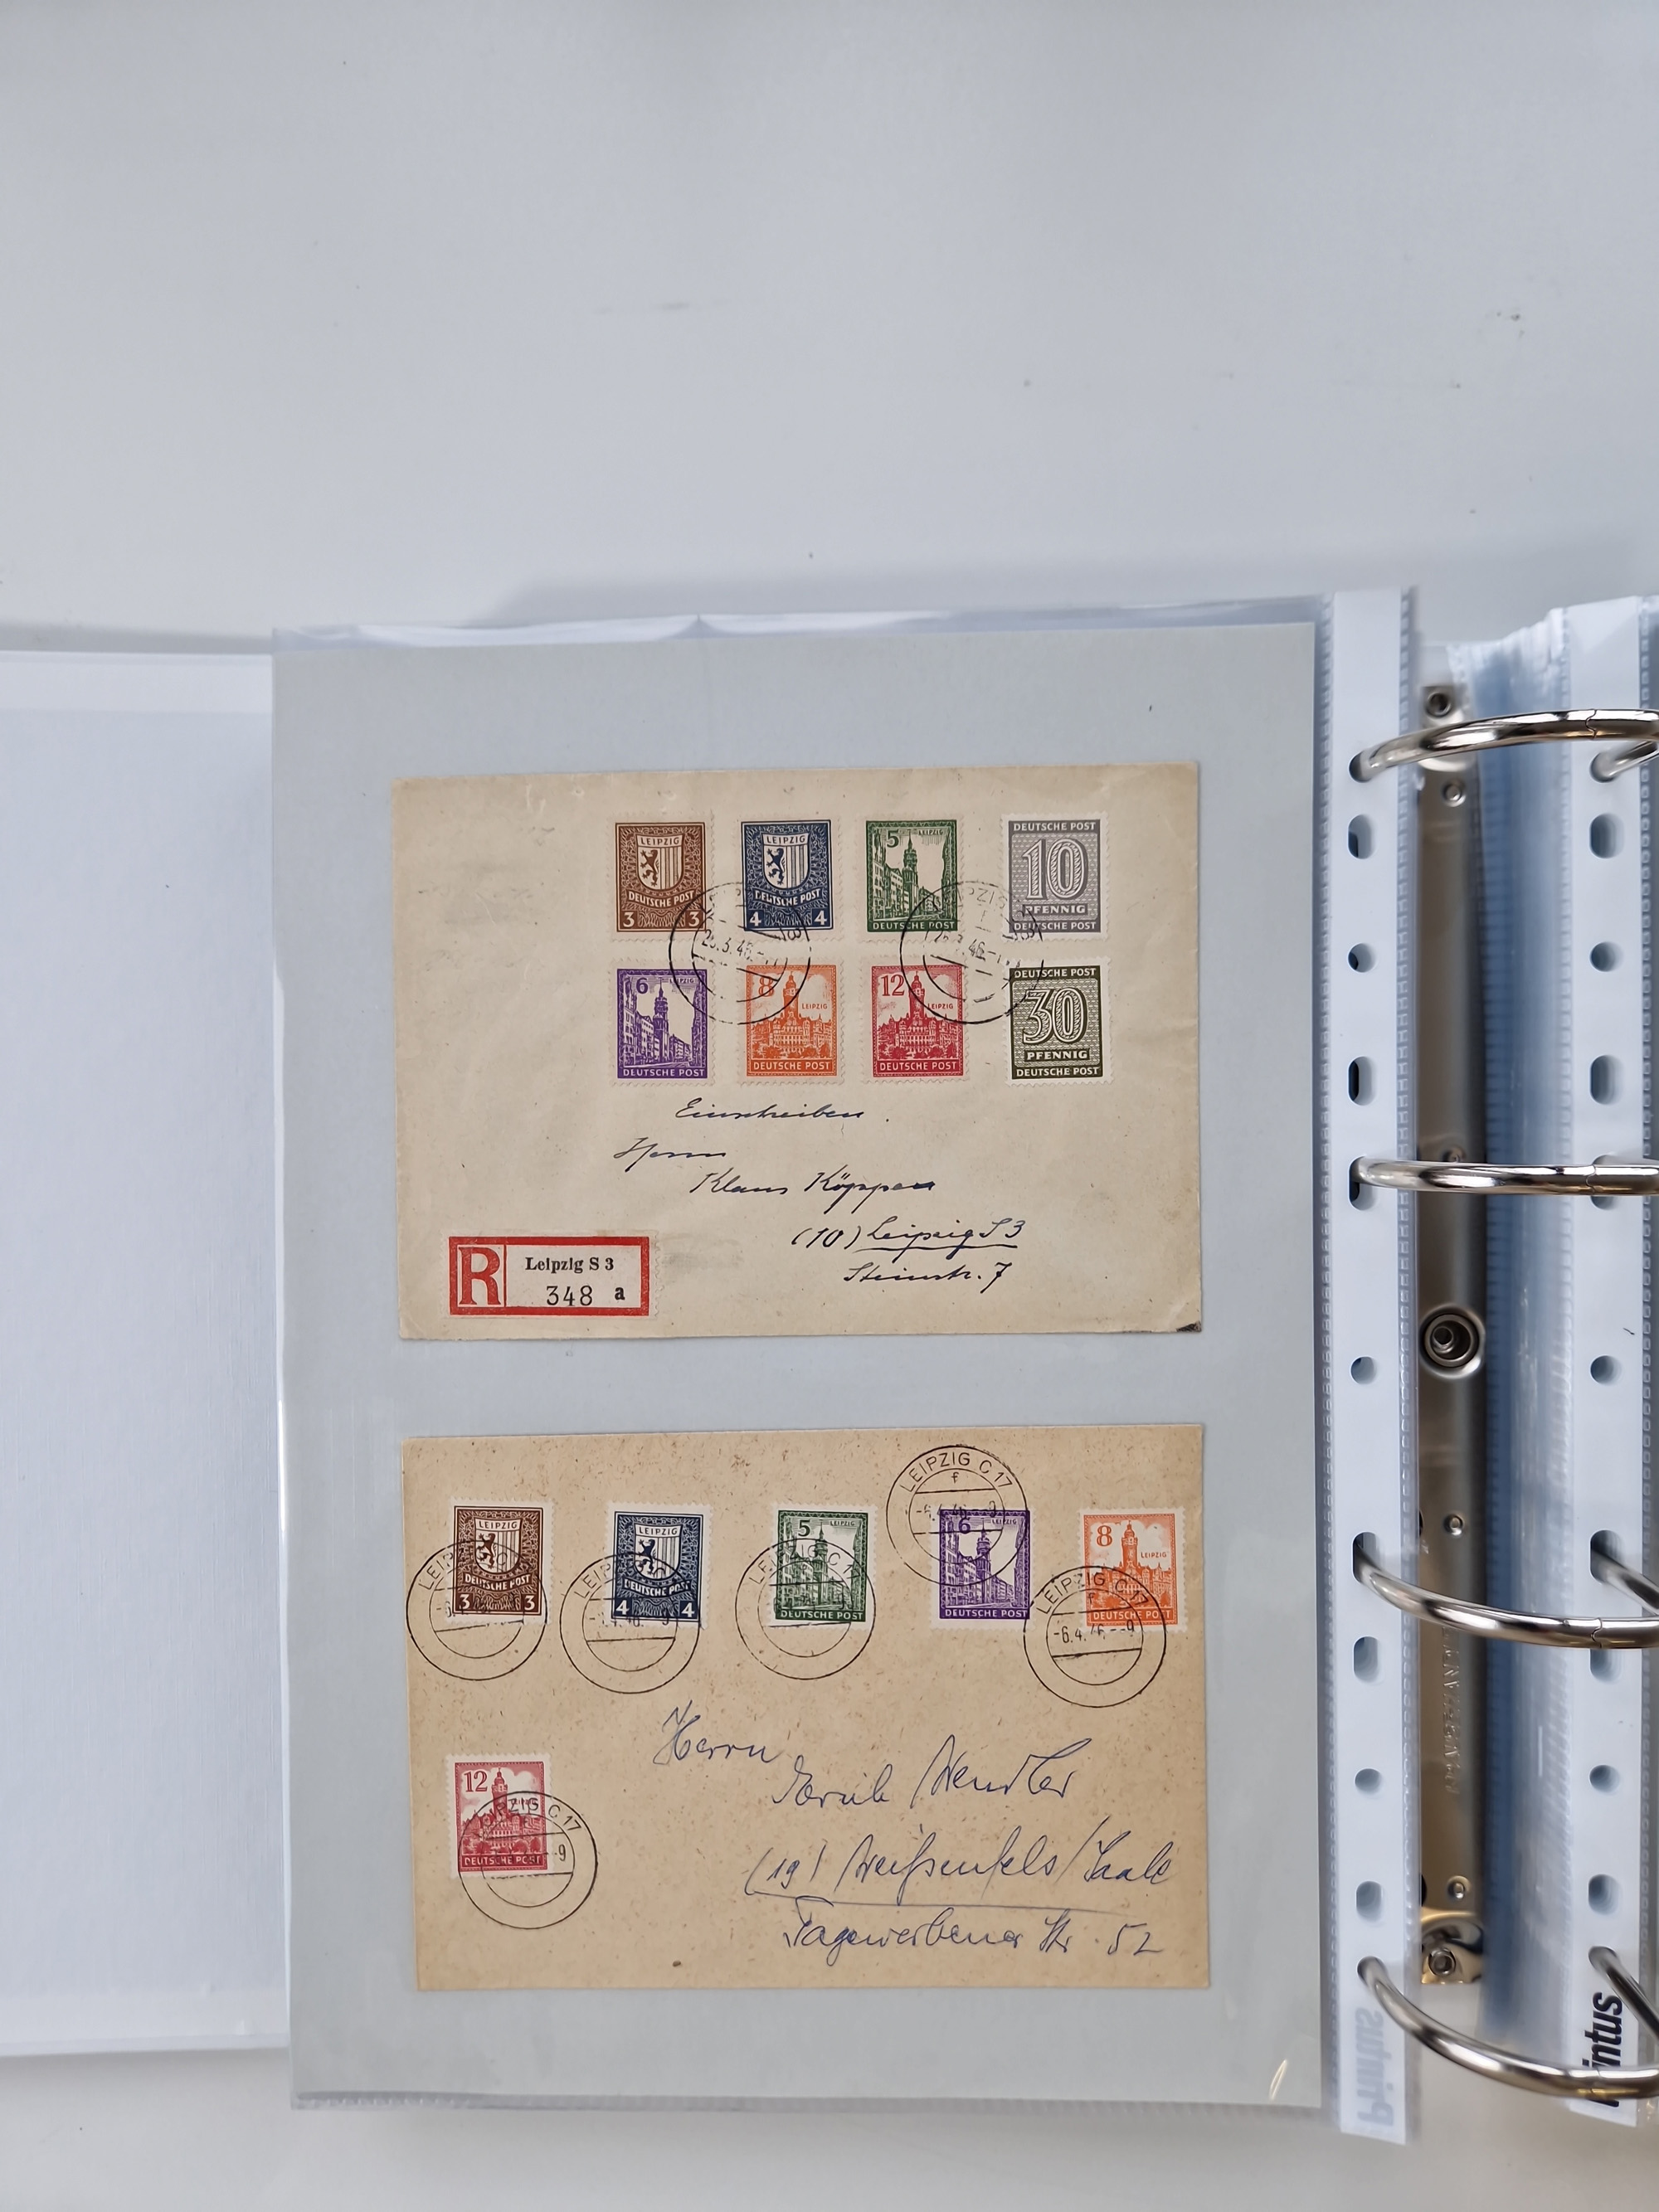 LEIPZIG
DEUTSCHE POST
3 3
LEIPZIG
DEUTSCHE POST
4 4
5 LEIPZIG
DEUTSCHE POST
DEUTSCHE POST
10
PFENNIG
DEUTSCHE POST
6 LEIPZIG
DEUTSCHE POST
8
LEIPZIG
DEUTSCHE POST
12
LEIPZIG
DEUTSCHE POST
DEUTSCHE POST
30
PFENNIG
DEUTSCHE POST
.3.46.
Einschreiben.
Herrn
Klaus Köppen
(10) Leipzig S 3
Steinstr. 7
R Leipzig S 3
348 a
LEIPZIG
DEUTSCHE POST
3 3
LEIPZIG
DEUTSCHE POST
4 4
5 LEIPZIG
DEUTSCHE POST
6 LEIPZIG
DEUTSCHE POST
8
LEIPZIG
DEUTSCHE POST
LEIPZIG C 17
f
LEIPZIG C 17
-6.4.46.--9
12
DEUTSCHE POST
LEIPZIG C 17
-9
Herrn
Wendler
(19) Weißenfels/Saale
Tagewerbener Str. 52
Printus
intus